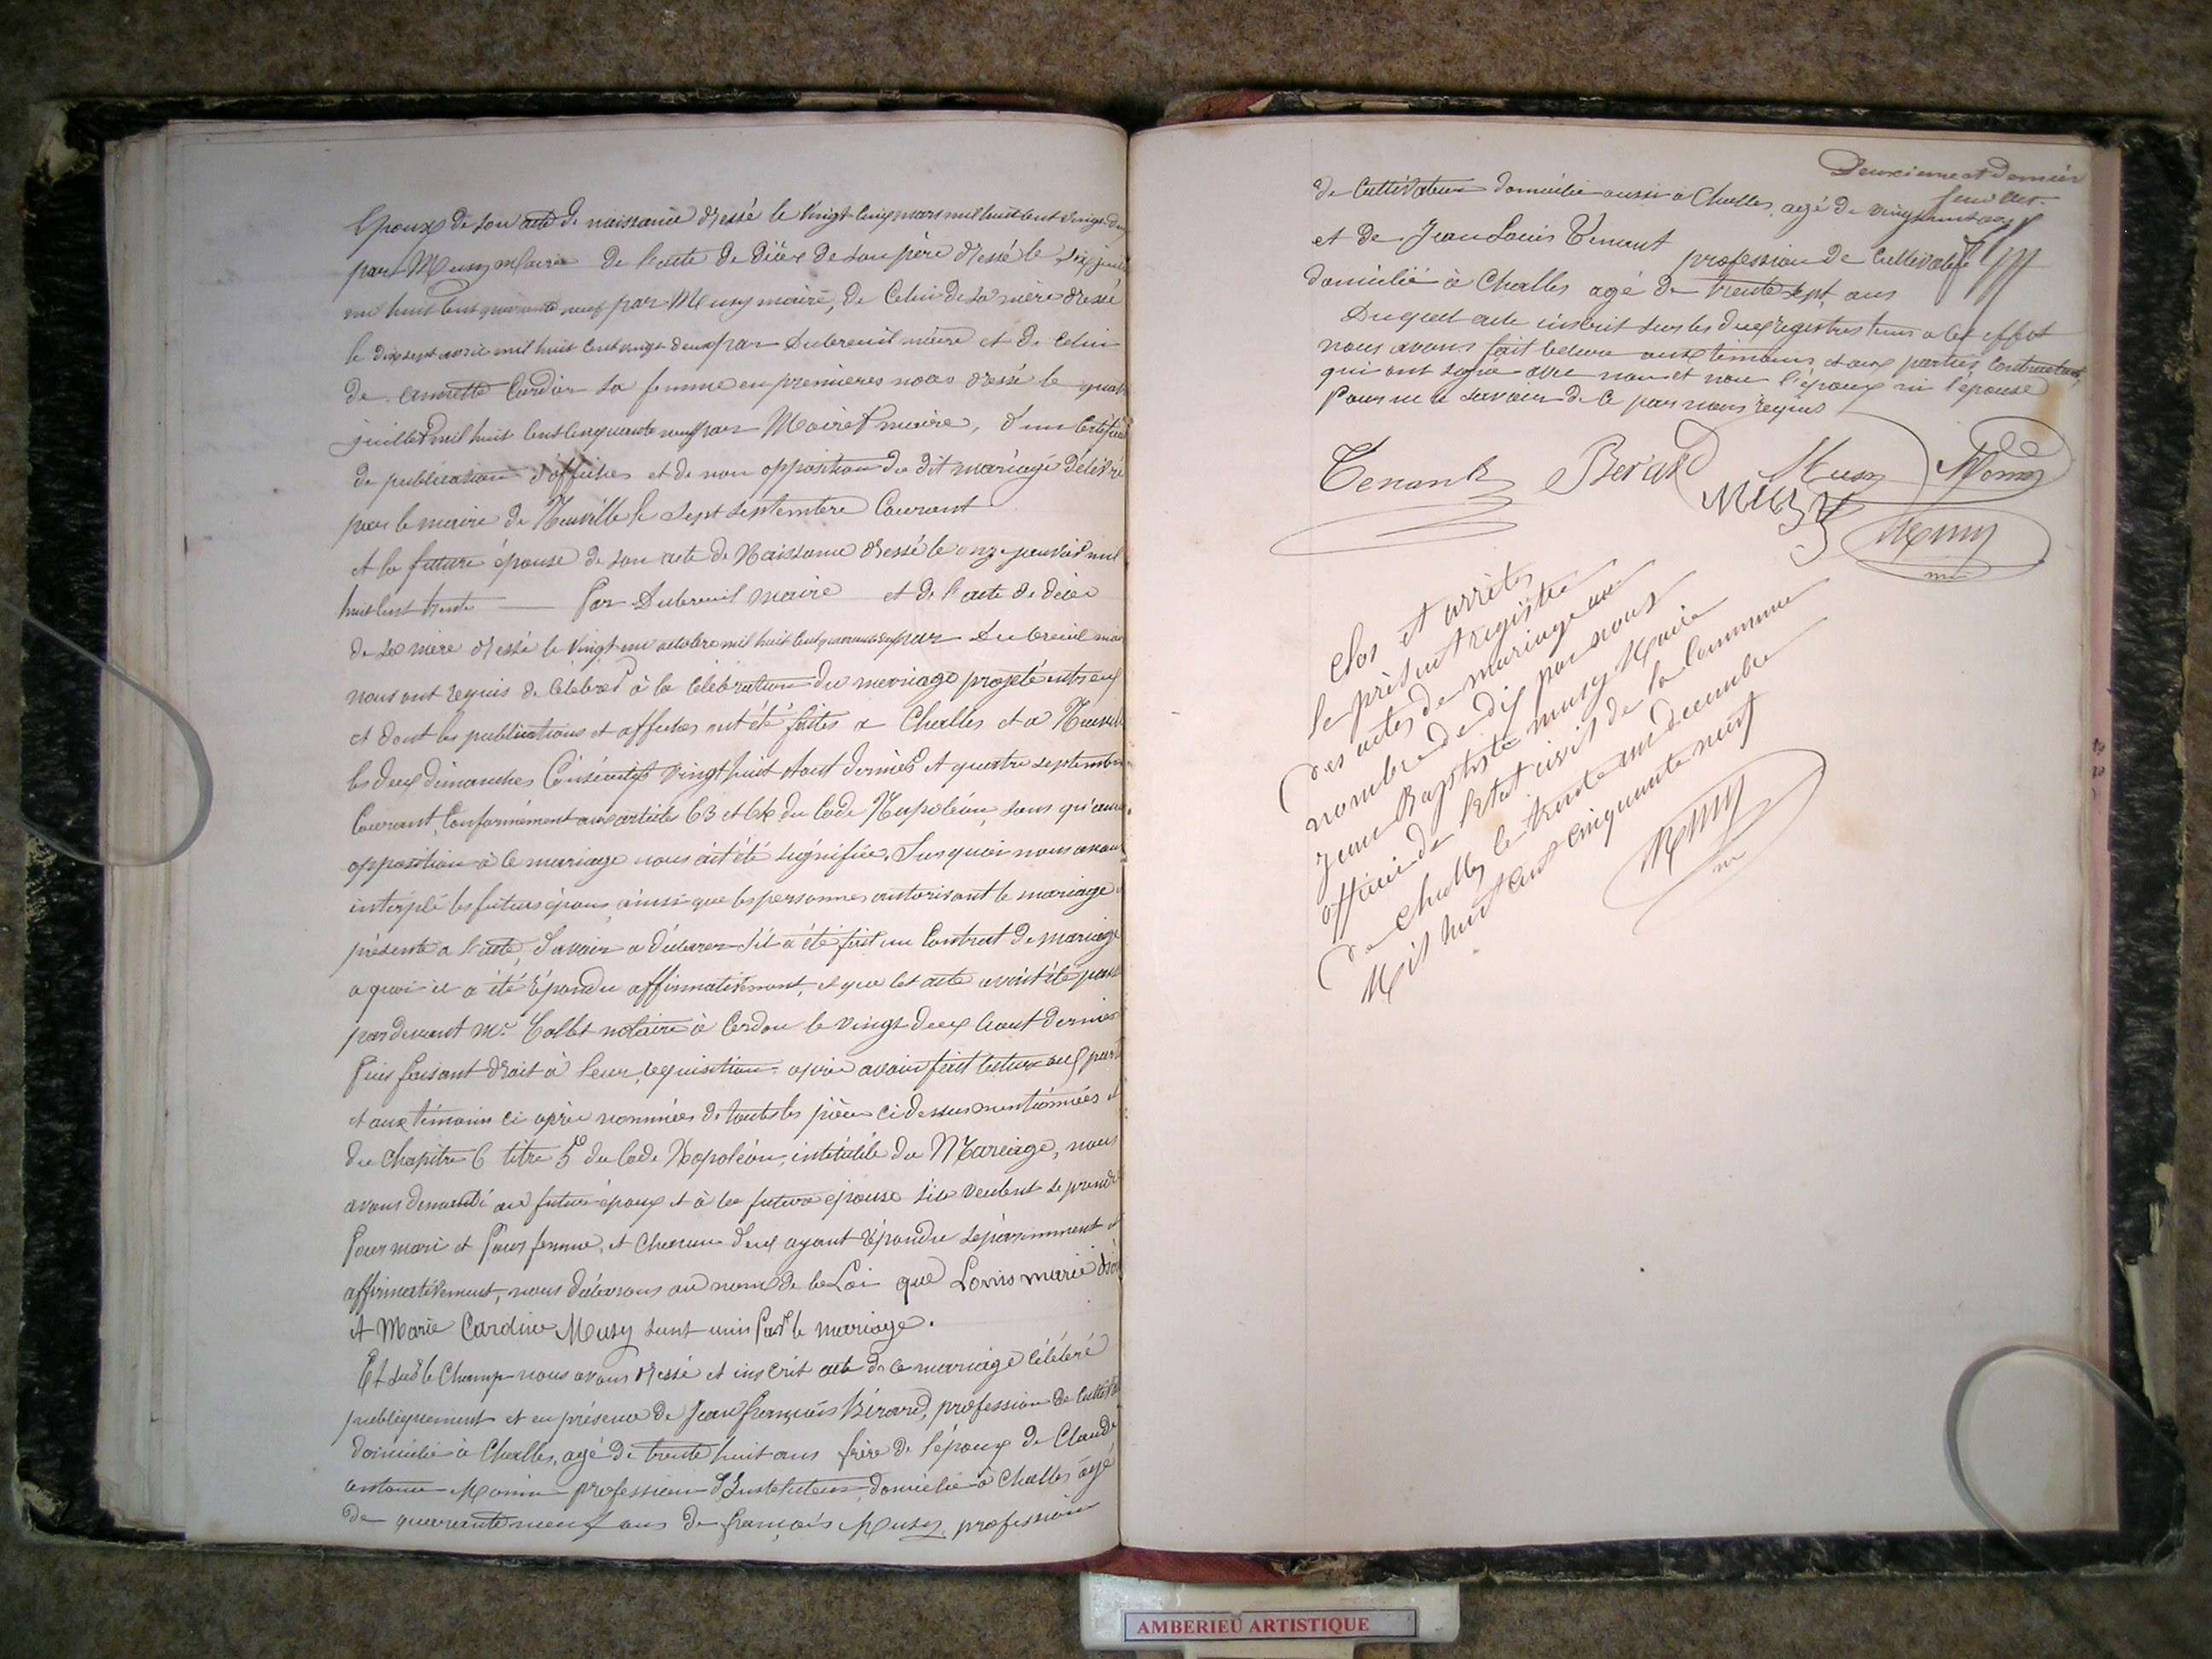 Epoux de son acte de naissance dressé le vingt cinq mars mil huit cent vingt deux
par Musy Maire de l'acte de décès de son père dressé le six juin
mil huit cent quarante neuf par Musy maire, de Celui de sa mère dressé
le dix sept avril mil huit cent vingt deux par Dubreuil maire et de celui
de annette Cardier sa femme en premieres noces dressé le quatre
juillet mil huit cent cinquante neuf par Maire, d'un Certificat
de publication d'affiches et de non opposition du dit mariage délivré
par le maire de Neuville le sept septembre Courant
et la future épouse de son acte de Naissance dressé le onze janvier mil
huit cent trente par Dubreuil maire et de l'acte de décès
de sa mère dressé le vingt un octobre mil huit cent par Dubreuil maire
nous ont requis de célébrer à la Célébration du mariage projeté entre eux
et dont les publications et affiches ont été faites a Challes et a Neuville
les deux dimanches Consécutifs vingt huit Aout dernier et quatre septembre
Courant, Conformément aux articles 63 et 64 du Code Napoléon, sans qu'aucune
opposition à ce mariage nous ait été signifiée. Sur quoi nous avons
interpellé les futurs époux ainsi que les personnes autorisant le mariage
présente a l'acte, Savoir a déclarer s'il a été fait un Contrat de mariage
a quoi il a été répondu affirmativement, et que cet acte avait été passé
pardevant Mr. Collet notaire à Cerdon le vingt deux Aout dernier
Puis faisant droit à leur réquisition après avoir fait lecture aux parties
et aux témoins ci après nommées de toutes les pièces ci dessus mentionnées et
du chapitre 6 titre 5 du Code Napoléon, intitulé du Mariage, nous
avons demandé au futur époux et à la future épouse s'ils veulent se prendre
Pour mari et Pour femme, et Chacun d'eux ayant répondu séparemment et
affirmativement, nous déclarons au nom de la Loi que Louis marie
et Marie Caroline Musy sont unis Par le mariage.
Et sur le Champ nous avons dressé et inscrit acte de ce mariage célébré
publiquement et en présence de Jean françois Bérard, profession de Cultivateur
domicilié à Challes, agé de trente huit ans frère de l'époux de Claude
antoine Monin profession d'Instituteur domicilié à Challes agé
de quarante neuf ans de françois Musy, profession
Deuxieme et Dernier
feuillet
de Cultivateur domicilié aussi à Challes, agé de vingt huit ans
et de Jean Louis Tenant profession de Cultivateur
domicilié à Challes agé de trente sept ans
Duquel acte inscrit sur les deux registres tenus a cet effet
nous avons fait lecture aux témoins et aux parties contractantes
qui ont signé avec nous et non l'époux ni l'épouse
Pour ne le savoir de ce par nous requis
Tenant Berard Musy Monin
Musy Musy
Clos et arrêté
le présent registre
des actes de mariage au
nombre de dix par nous
Jean Baptiste musy Maire
officier de l'etat civil de la Commune
de Challes le trente un decembre
Mil huit cent cinquante neuf
Musy
AMBERIEU ARTISTIQUE